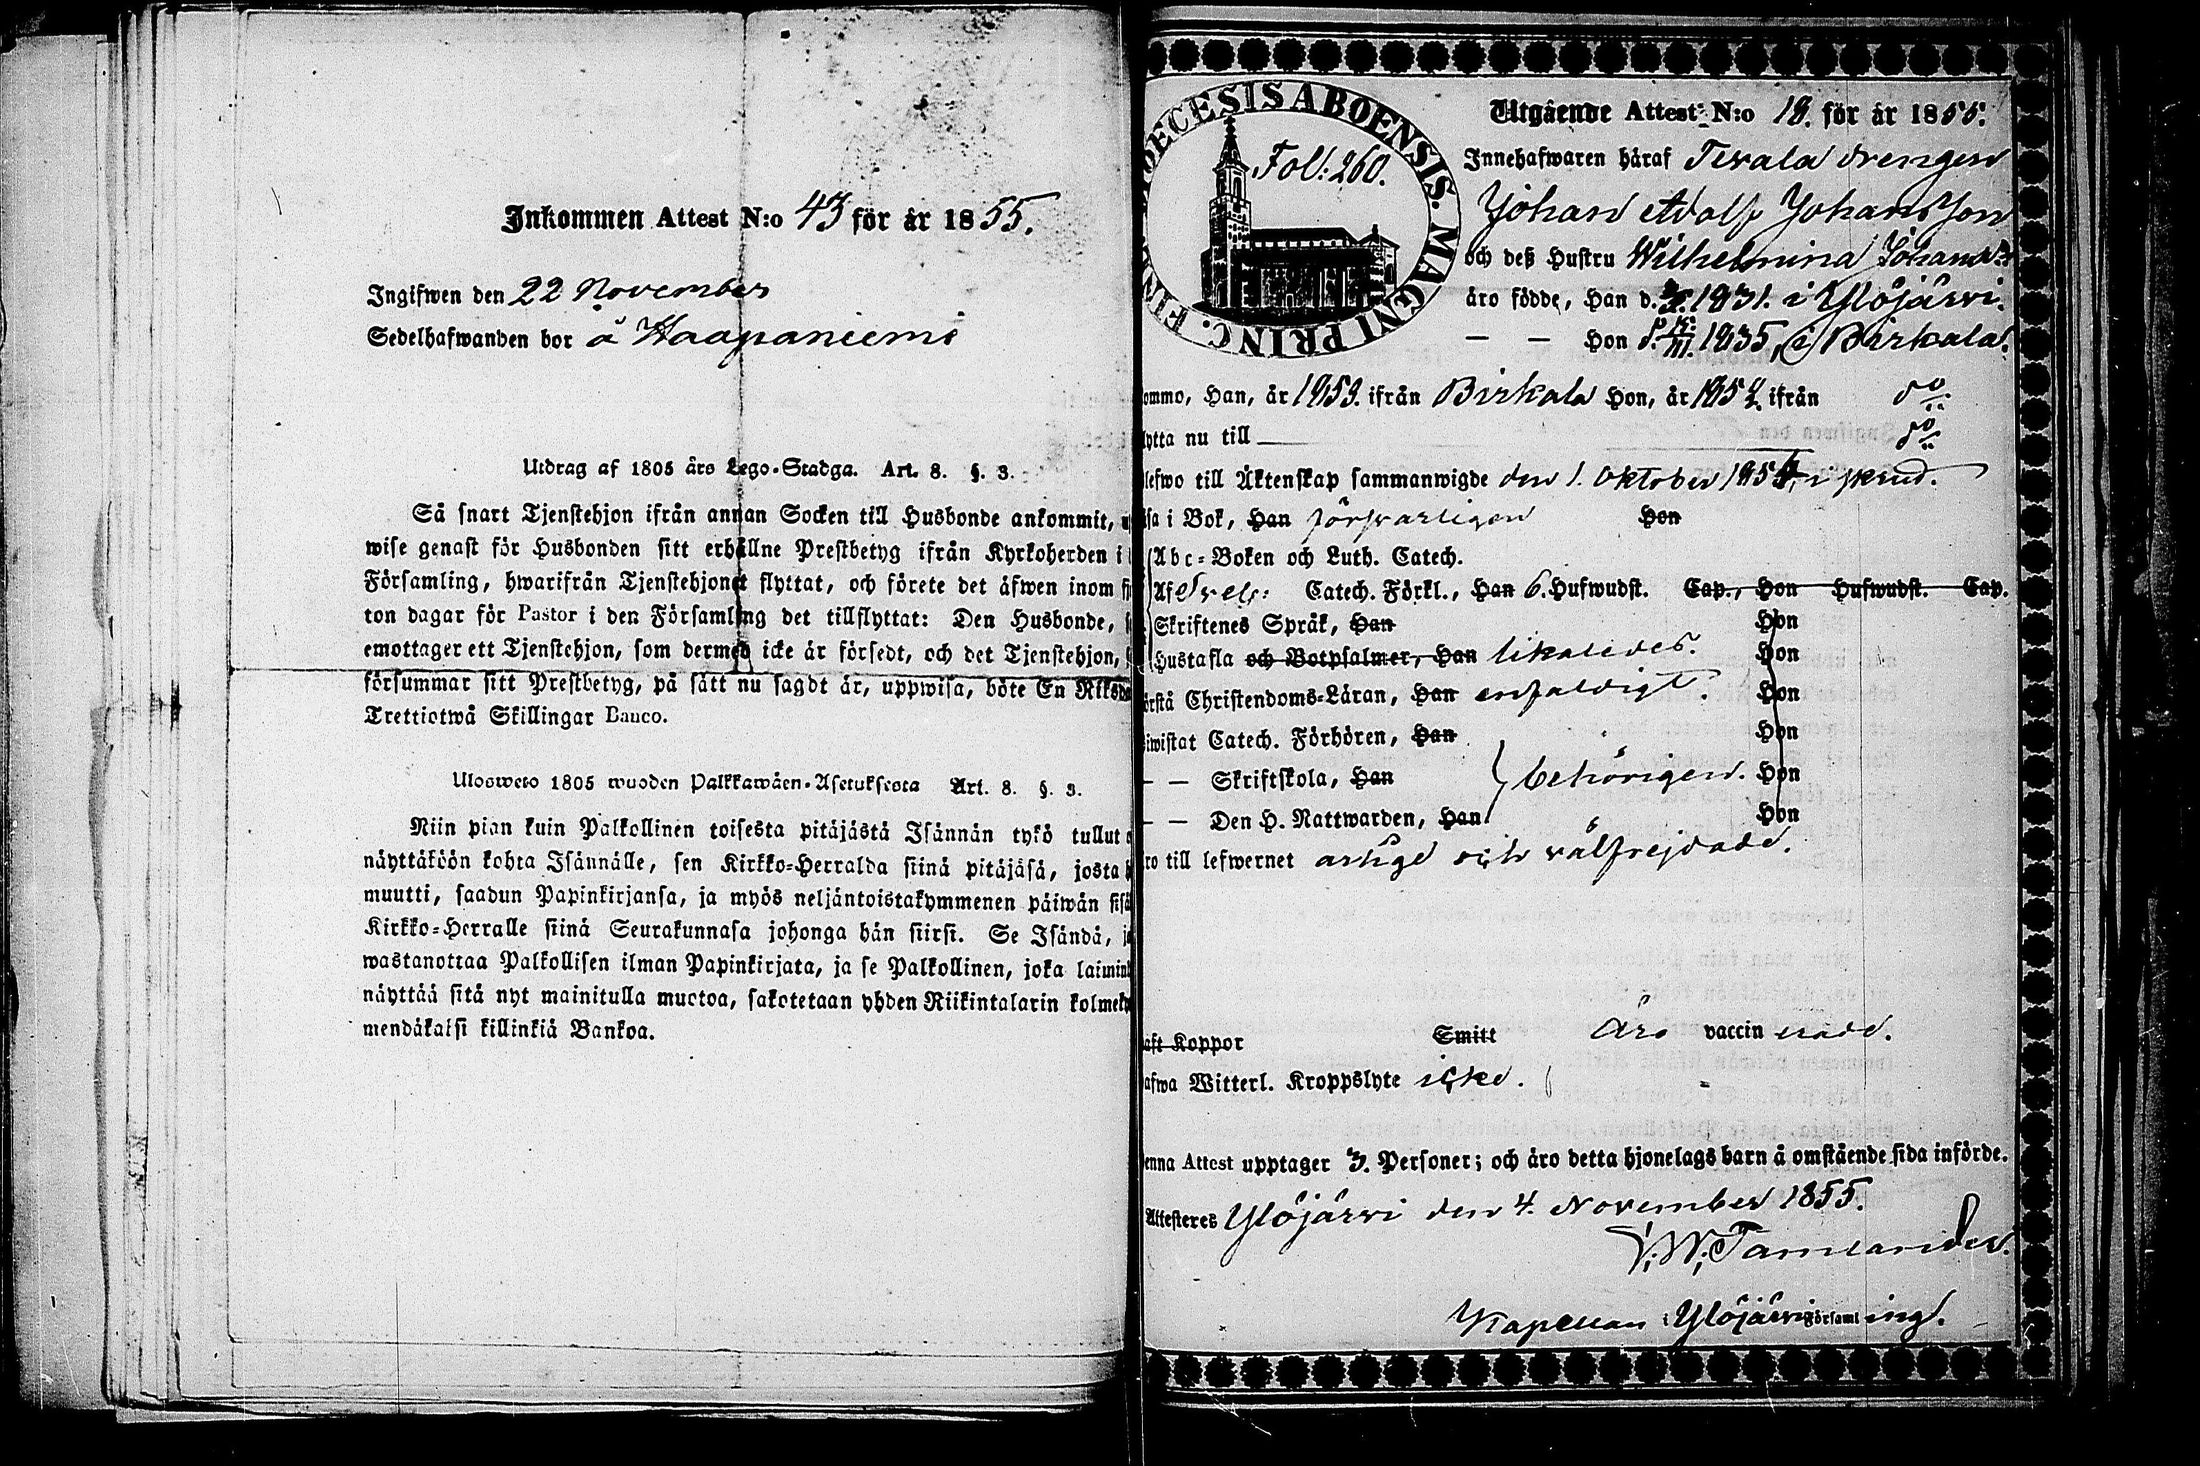 Inkommen Attest N:o 43 för år 1855.
Ingifwen den 22 November
Sedelhafwanden bor å Haapaniemi
Utdrag af 1805 års Lego-Stadga. Art. 8. §. 3.
Så snart Tjenstehjon ifrån annan Socken till Husbonde ankommit,
wise genast för Husbonden sitt erhållne Prestbetyg ifrån Kyrkoherden i
Församling, hwarifrån Tjenstehjonet flyttat, och förete det äfwen inom
ton dagar för Pastor i den Församling det tillflyttat: Den Husbonde,
emottager ett Tjenstehjon, som dermed icke är försedt, och det Tjenstehjon,
försummar sitt Prestbetyg, på sätt nu sagdt är, uppwisa, böte En Riksda
Trettiotwå Skillingar Banco.
Ulosweto 1805 wuoden Palkkawäen-Asetuksesta Art. 8. §. 3.
Niin pian kuin Palkollinen toisesta pitäjästä Isännän tykö tullut
näyttäköön kohta Isännälle, sen Kirkko-Herralda siinä pitäjäsä, josta
muutti, saadun Papinkirjansa, ja myös neljäntoistakymmenen päiwän sisä
Kirkko-Herralle siinä Seurakunnasa johonga hän siirsi. Se Isändä,
wastanottaa Palkollisen ilman Papinkirjata, ja se Palkollinen, joka laimin
näyttää sitä nyt mainitulla muotoa, sakotetaan yhden Riikintalarin kolmek
mendäkaksi killinkiä Bankoa.
DIOECESIS ABOENSIS. MAGNI PRINC. FIN
Fol: 260.
Utgående Attest N:o 18. för år 1855.
Innehafwaren häraf drengen
Johan Adolf Johansson
och deß Hustru Wilhelmina Johansd:r
äro födde, Han d. 1831. i Ylöjärvi.
— — Hon d. 1835, i Birkala.
ommo, Han, år 1853. ifrån Birkala Hon, år 1854. ifrån do
lytta nu till do
lefwo till Äktenskap sammanwigde den 1. Oktober 1854, i skrud.
äsa i Bok, Han försvarligen Hon
Abc-Boken och Luth. Catech.
Af Catech. Förkl., Han 6. Hufwudst. Cap., Hon Hufwudst. Cap.
Skriftenes Språk, Han Hon
Hustafla och Botpsalmer, Han likaledes. Hon
örstå Christendoms-Läran, Han enfaldigt. Hon
iwistat Catech. Förhören, Han Hon
— — Skriftskola, Han behörigen. Hon
— — Den H. Nattwarden, Han Hon
ro till lefwernet ärlige och välfrejdade.
aft Koppor Smitt Äro vaccinerade.
afwa Witterl. Kroppslyte icke.
enna Attest upptager 3. Personer; och äro detta hjonelags barn å omstående sida införde.
Attesteres Ylöjärvi den 4. November 1855.
Kapellan i Ylöjärvi Församling.